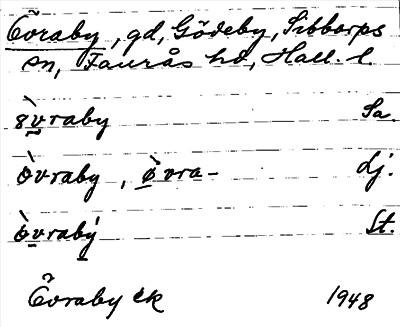 Övraby, gd, Gödeby, Sibbarps
sn, Faurås hd, Hall. l.
8̀vraby Sa.
òvraby, ø̀vra- dj.
ò̱vrabý̱ St.
Övraby ck 1948